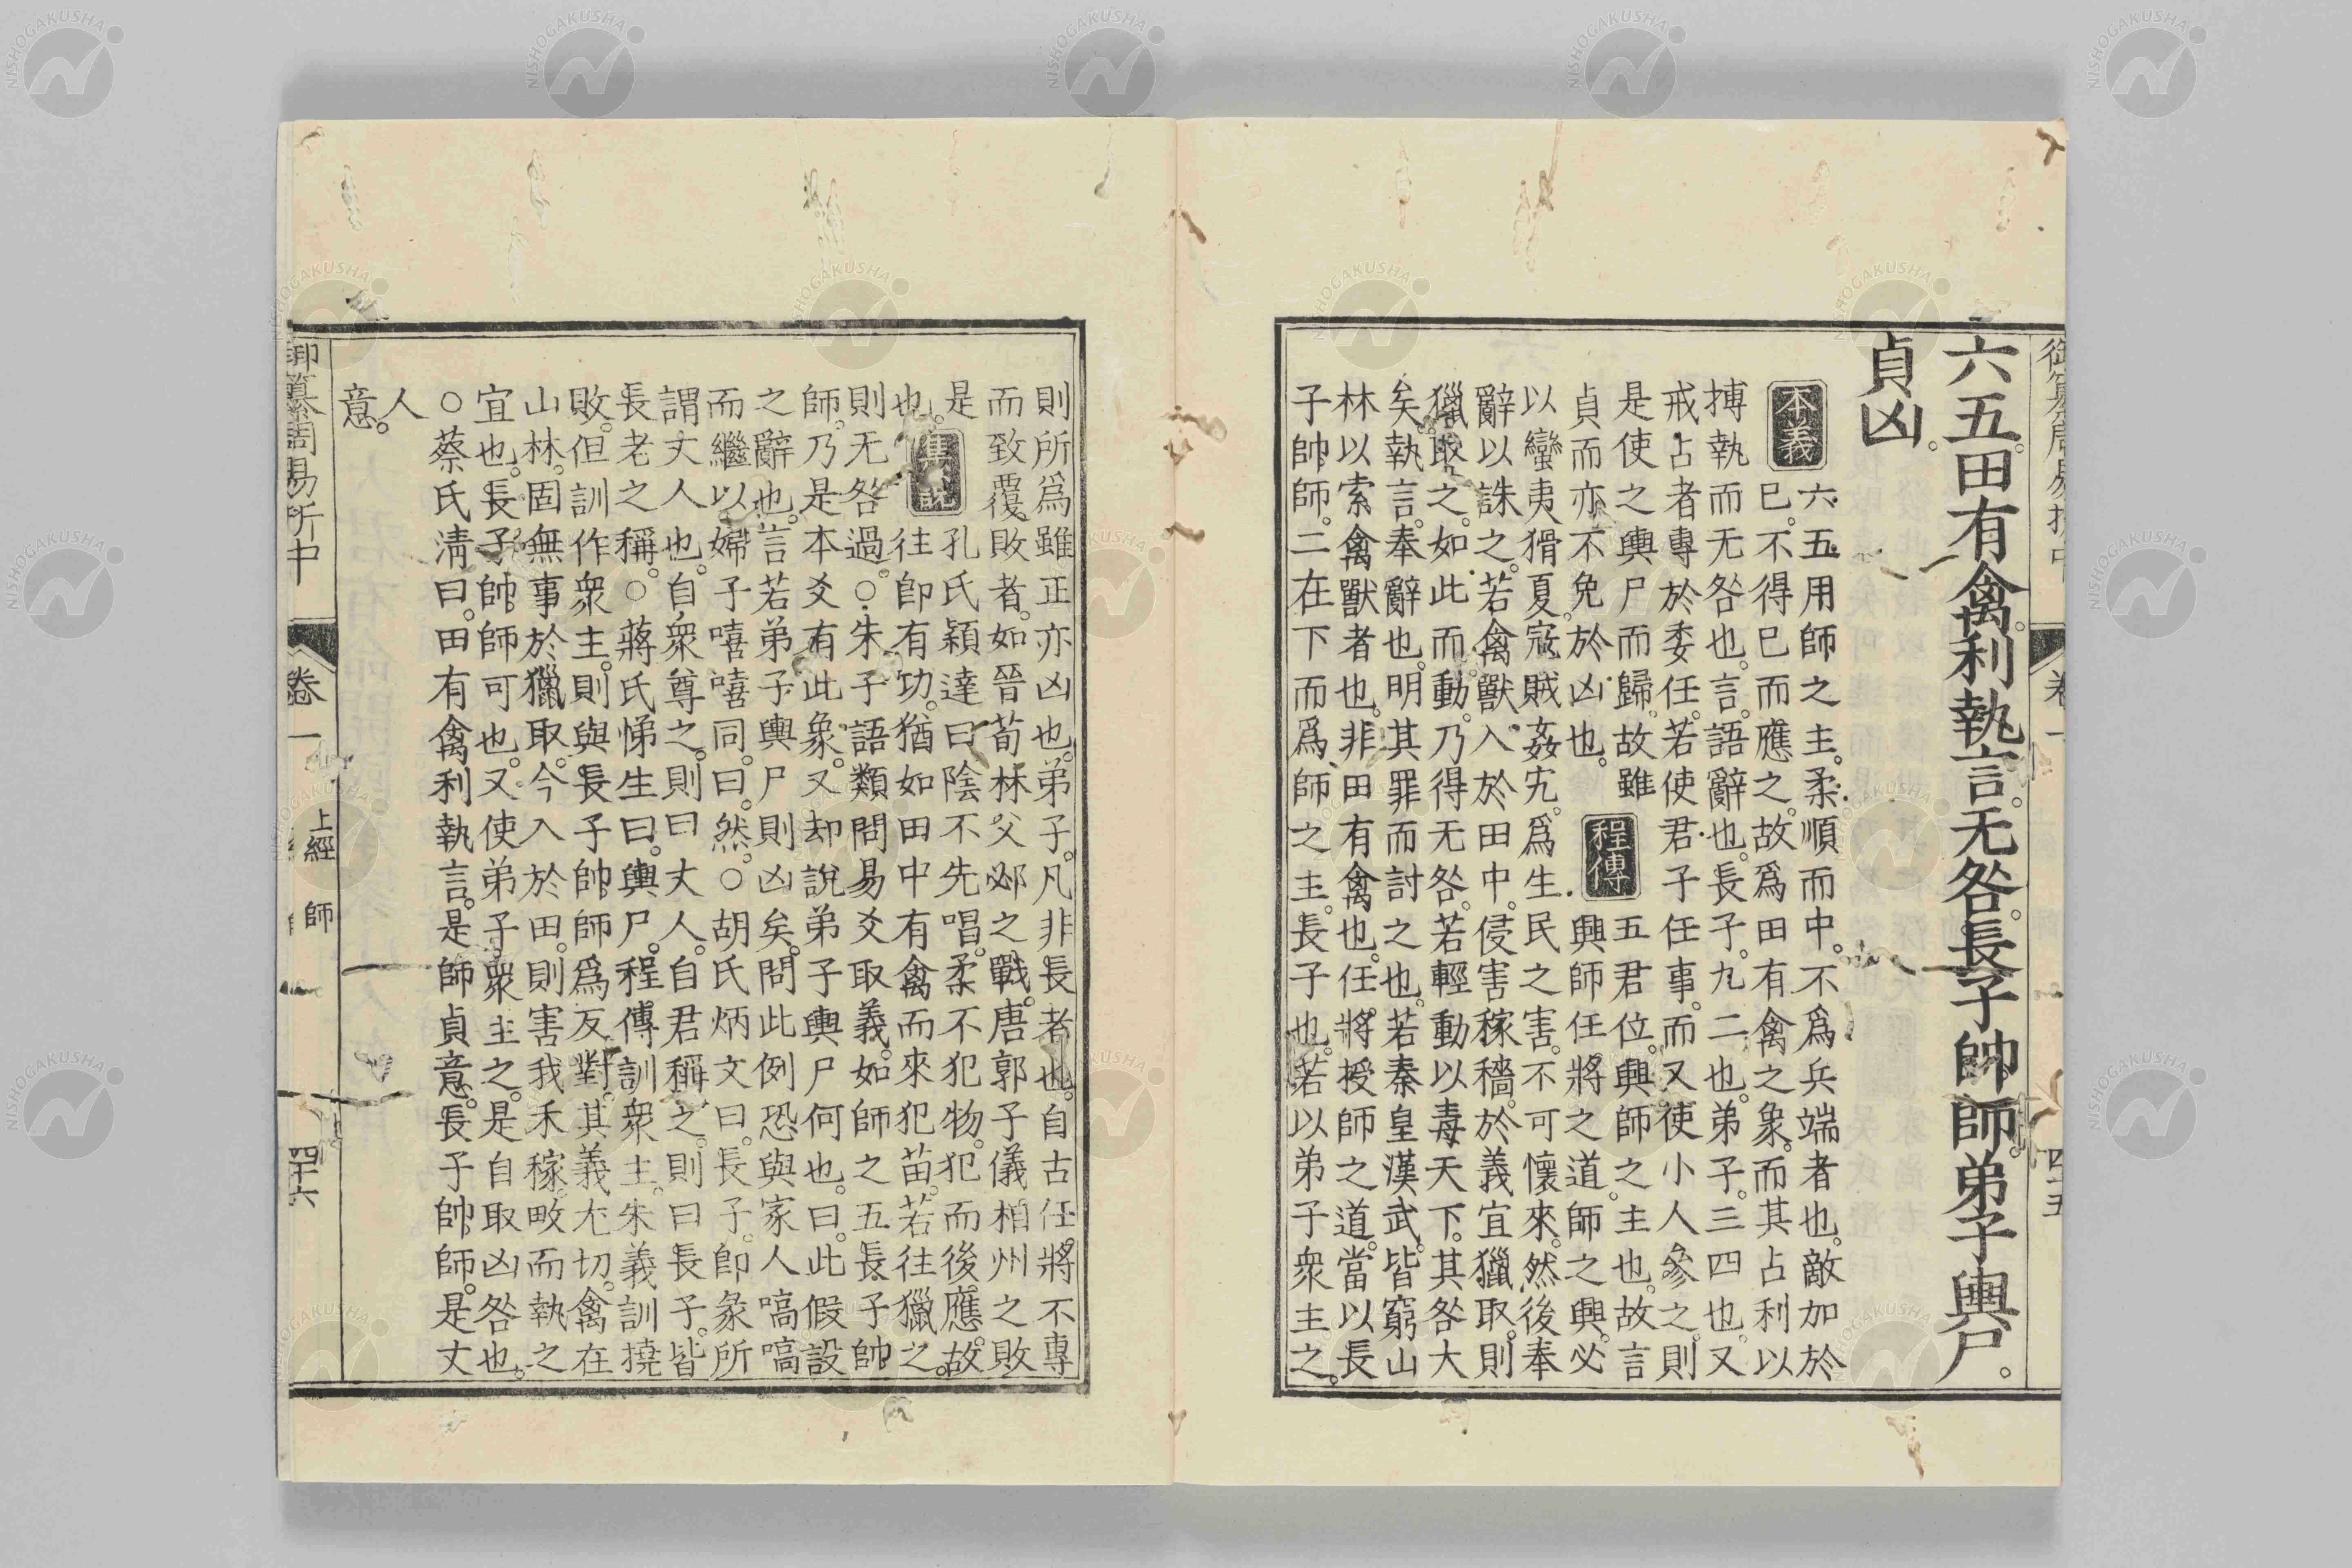 六五。田有禽。利執言。无咎。長子帥師。弟子輿尸。
貞凶。
本義
六五用師之主。柔順而中。不爲兵端者也。敵加於
已。不得已而應之。故爲田有禽之象。而其占利以
搏執而无咎也。言。語辭也。長子。九二也。弟子。三四也。又
戒占者專於委任。若使君子任事。而又使小人參之。則
是使之輿尸而歸。故雖
貞而亦不免於凶也。
程傳
五君位。興師之主也。故言
興師任將之道。師之興。必
以蠻夷猾夏。寇賊姦宄。爲生民之害。不可懷來。然後奉
辭以誅之。若禽獸入於田中。侵害稼穡。於義宜獵取。則
獵取之。如此而動。乃得无咎。若輕動以毒天下。其咎大
矣。執言。奉辭也。明其罪而討之也。若秦皇漢武。皆窮山
林以索禽獸者也。非田有禽也。任將授師之道。當以長
子帥師。二在下而爲師之主。長子也。若以弟子衆主之。
則所爲雖正亦凶也。弟子。凡非長者也。自古任將不專
而致覆敗者。如晉荀林父邲之戰。唐郭子儀相州之敗
是
也。
集說
孔氏穎達曰。陰不先唱。柔不犯物。犯而後應。故
往即有功。猶如田中有禽而來犯苗。若往獵之。
則无咎過。○朱子語類問易爻取義。如師之五長子帥
師。乃是本爻有此象。又却說弟子輿尸何也。曰。此假設
之辭也。言若弟子輿尸則凶矣。問此例恐與家人嗃嗃
而繼以婦子嘻嘻同。曰。然。○胡氏炳文曰。長子。即彖所
謂丈人也。自衆尊之。則曰丈人。自君稱之。則曰長子。皆
長老之稱。○蔣氏悌生曰。輿尸。程傳訓衆主。朱義訓撓
敗。但訓作衆主。則與長子帥師爲反對。其義尤切。禽在
山林。固無事於獵取。今入於田。則害我禾稼。畋而執之
宜也。長子帥師可也。又使弟子衆主之。是自取凶咎也。
○蔡氏淸曰。田有禽利執言。是師貞意。長子帥師。是丈
人
意。
御纂周易折中 卷一 上經 師 四十六